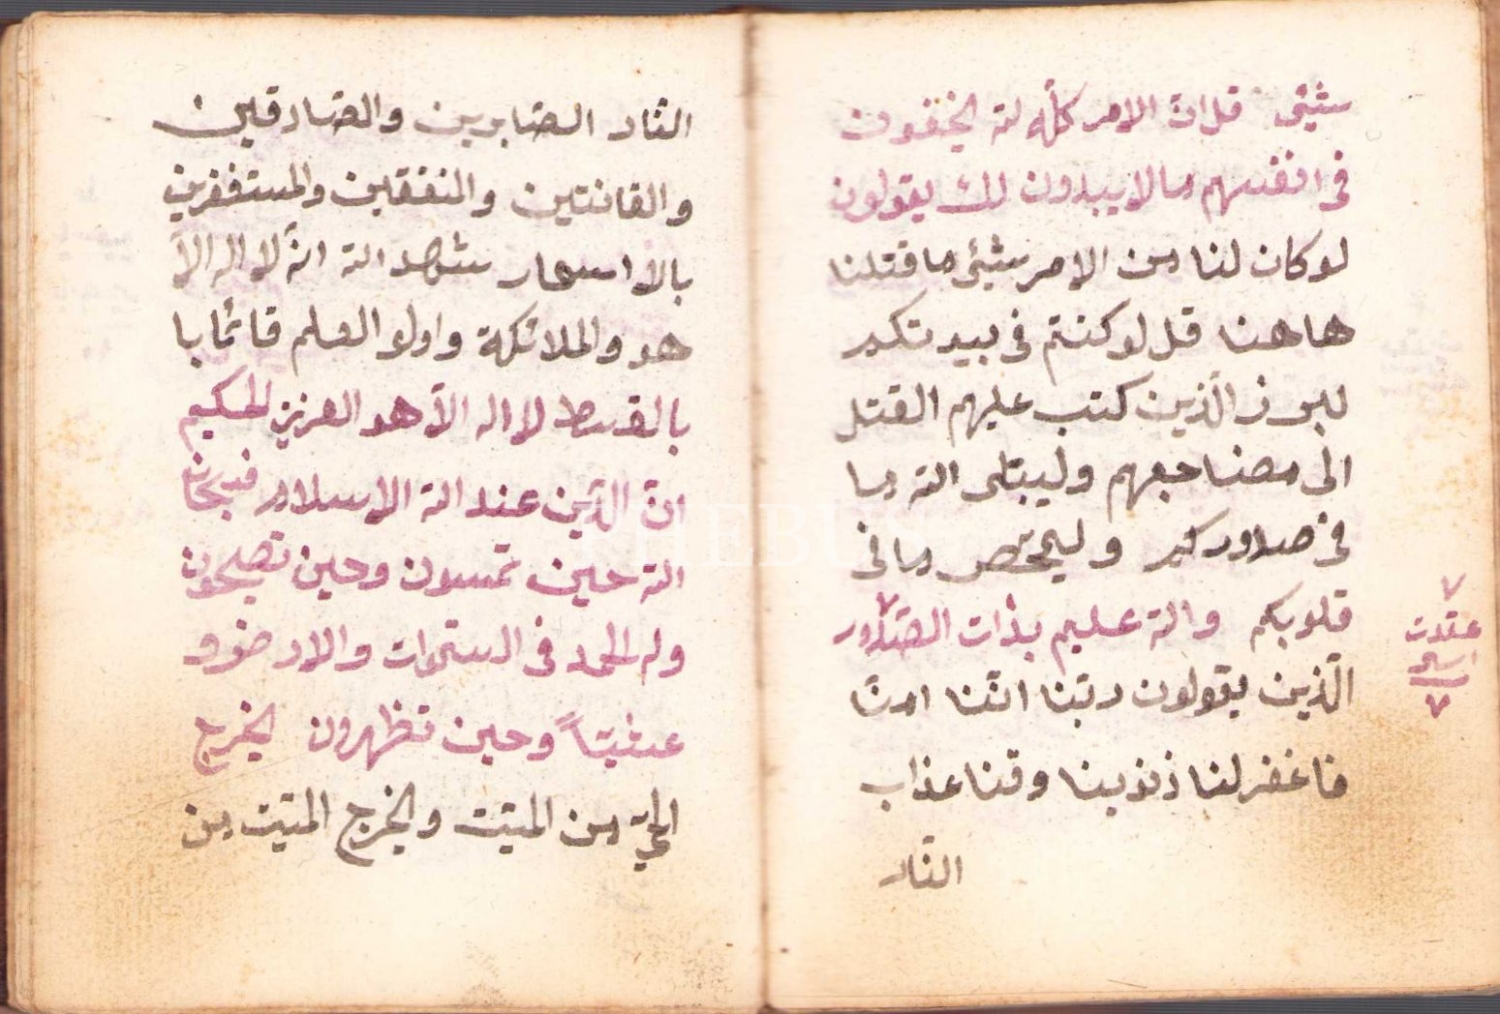 شيئى قل ان الامر كله لله يخفون
فى انفسهم ما لا يبدون لك يقولون
لو كان لنا من الامر شيئى ما قتلنا
هاهنا قل لو كنتم فى بيوتكم
لبرز الّذين كتب عليهم القتل
الى مضاجعهم وليبتلى الله ما
فى صدوركم وليمحّص ما فى
قلوبكم والله عليم بذات الصّدور
الّذين يقولون ربّنا انّنا امنّا
فاغفر لنا ذنوبنا وقنا عذاب
النّار
٧
عقدت
٧
النّار الصّابرين والصّادقين
والقانتين والمنفقين والمستغفرين
بالاسحار شهد الله انّه لا اله الاّ
هو والملائكة واولو العلم قائما با
بالقسط لا اله الاّ هو العزيز الحكيم
انّ الدّين عند الله الاسلام فسبحان
الله حين تمسون وحين تصبحون
وله الحمد فى السّموات والارض و
عشيّاً وحين تظهرون يخرج
الحيّ من الميّت ويخرج الميّت من
PHEBUS